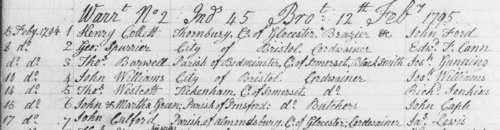 Warrt. No 2 Ind 45 Brot. 12th Feby 1795
5 Feby. 1794 1 Henry Collett Thornbury, Co. of Glocester Brazier &c John Ford
8 do. 2 Geo: Spurrier City of Bristol Cordwainer Edwd. T. Cann
do do. 3 Thos. Barwell Parish of Bedminster, C. of Somerset, Black Smith Jos: Gunning
10 do. 4 John Williams City of Bristol. Cordwainer Jos: Williams
14 do 5 Thos. Westcott Tickenham, C. of Somerset do. Richd. Jenkins
15 do 6 John & Martha Green; Parish of do. Butchers John Caple
17 do. 7 John Parish of Almondsbury, C. of Glocester; Cordwainer Jas: Lewis